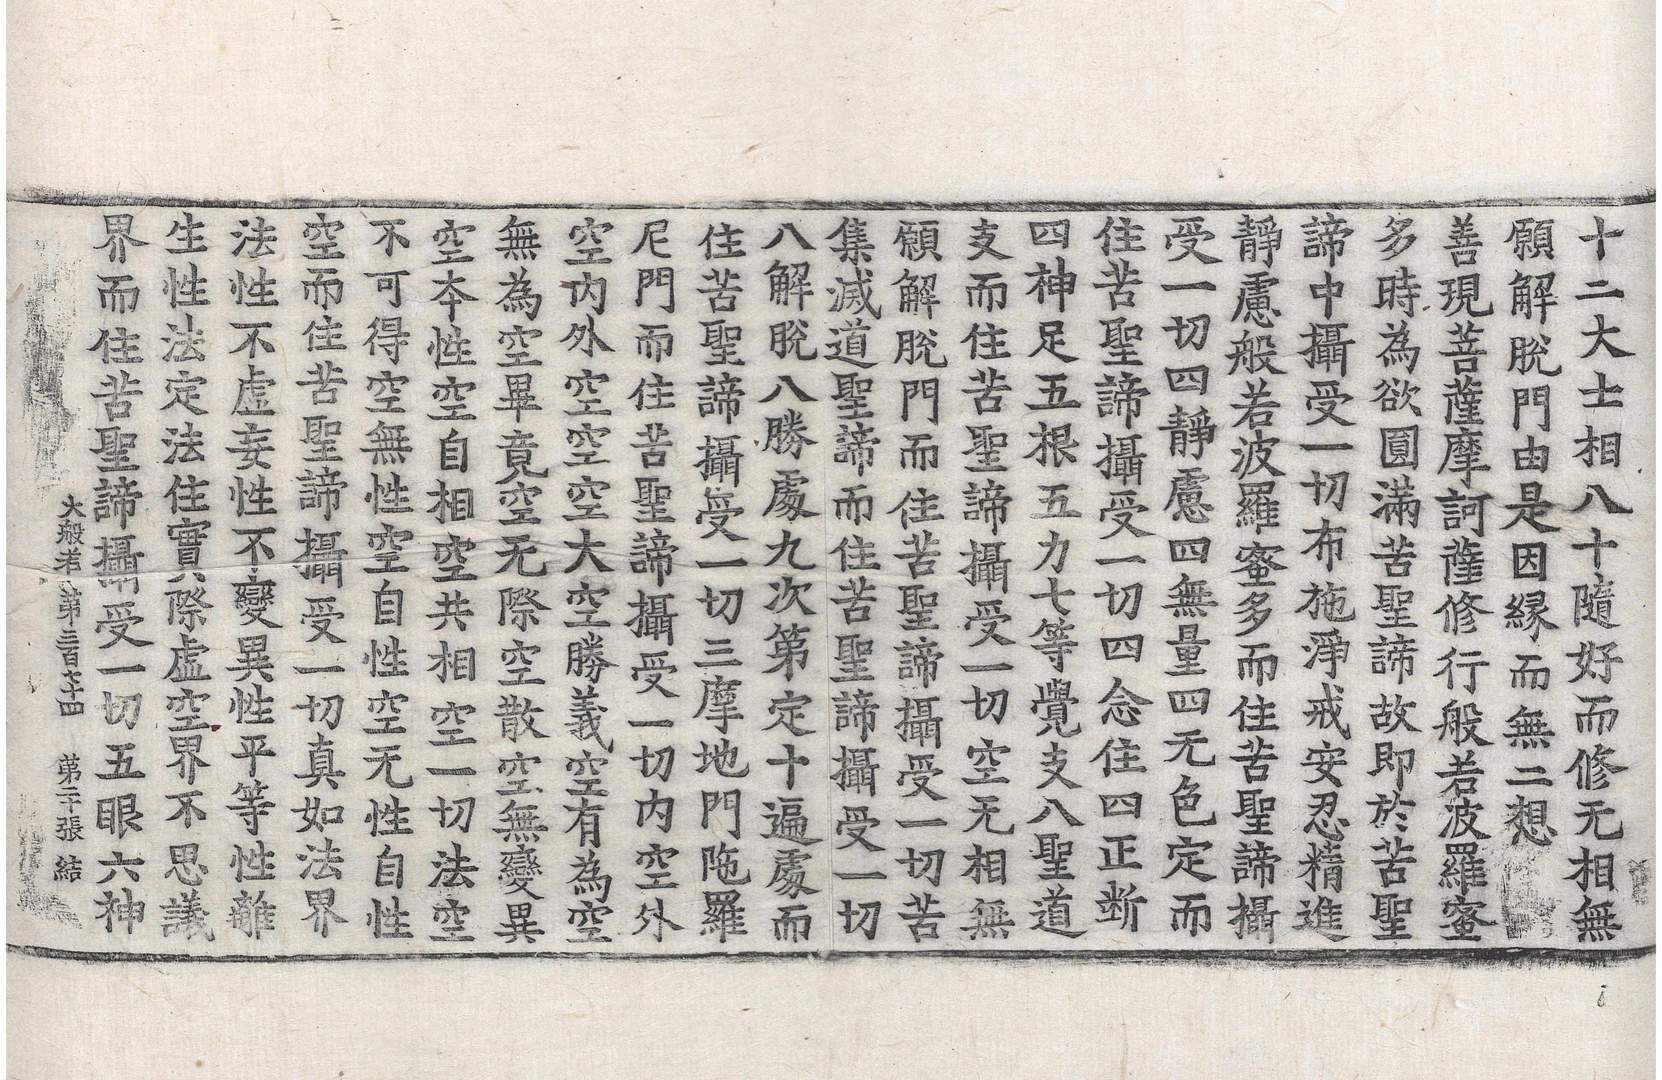 十二大士相八十隨好而修无相無
願解脫門由是因縁而無二想
善現菩薩摩訶薩修行般若波羅蜜
多時為欲圓滿苦聖諦故即於苦聖
諦中攝受一切布施淨戒安忍精進
靜慮般若波羅蜜多而住苦聖諦攝
受一切四靜慮四無量四无色定而
住苦聖諦攝受一切四念住四正断
四神足五根五力七等覺支八聖道
支而住苦聖諦攝受一切空无相無
願解脫門而住苦聖諦攝受一切苦
集滅道聖諦而住苦聖諦攝受一切
八解脫八勝處九次第定十遍處而
住苦聖諦攝受一切三摩地門陁羅
尼門而住苦聖諦攝受一切內空外
空內外空空空大空勝義空有為空
無為空畢竟空无際空散空無變異
空本性空自相空共相空一切法空
不可得空無性空自性空无性自性
空而住苦聖諦攝受一切真如法界
法性不虛妄性不變異性平等性離
生性法定法住實際虛空界不思議
界而住苦聖諦攝受一切五眼六神
大般若第三百七十四 第二十張 結